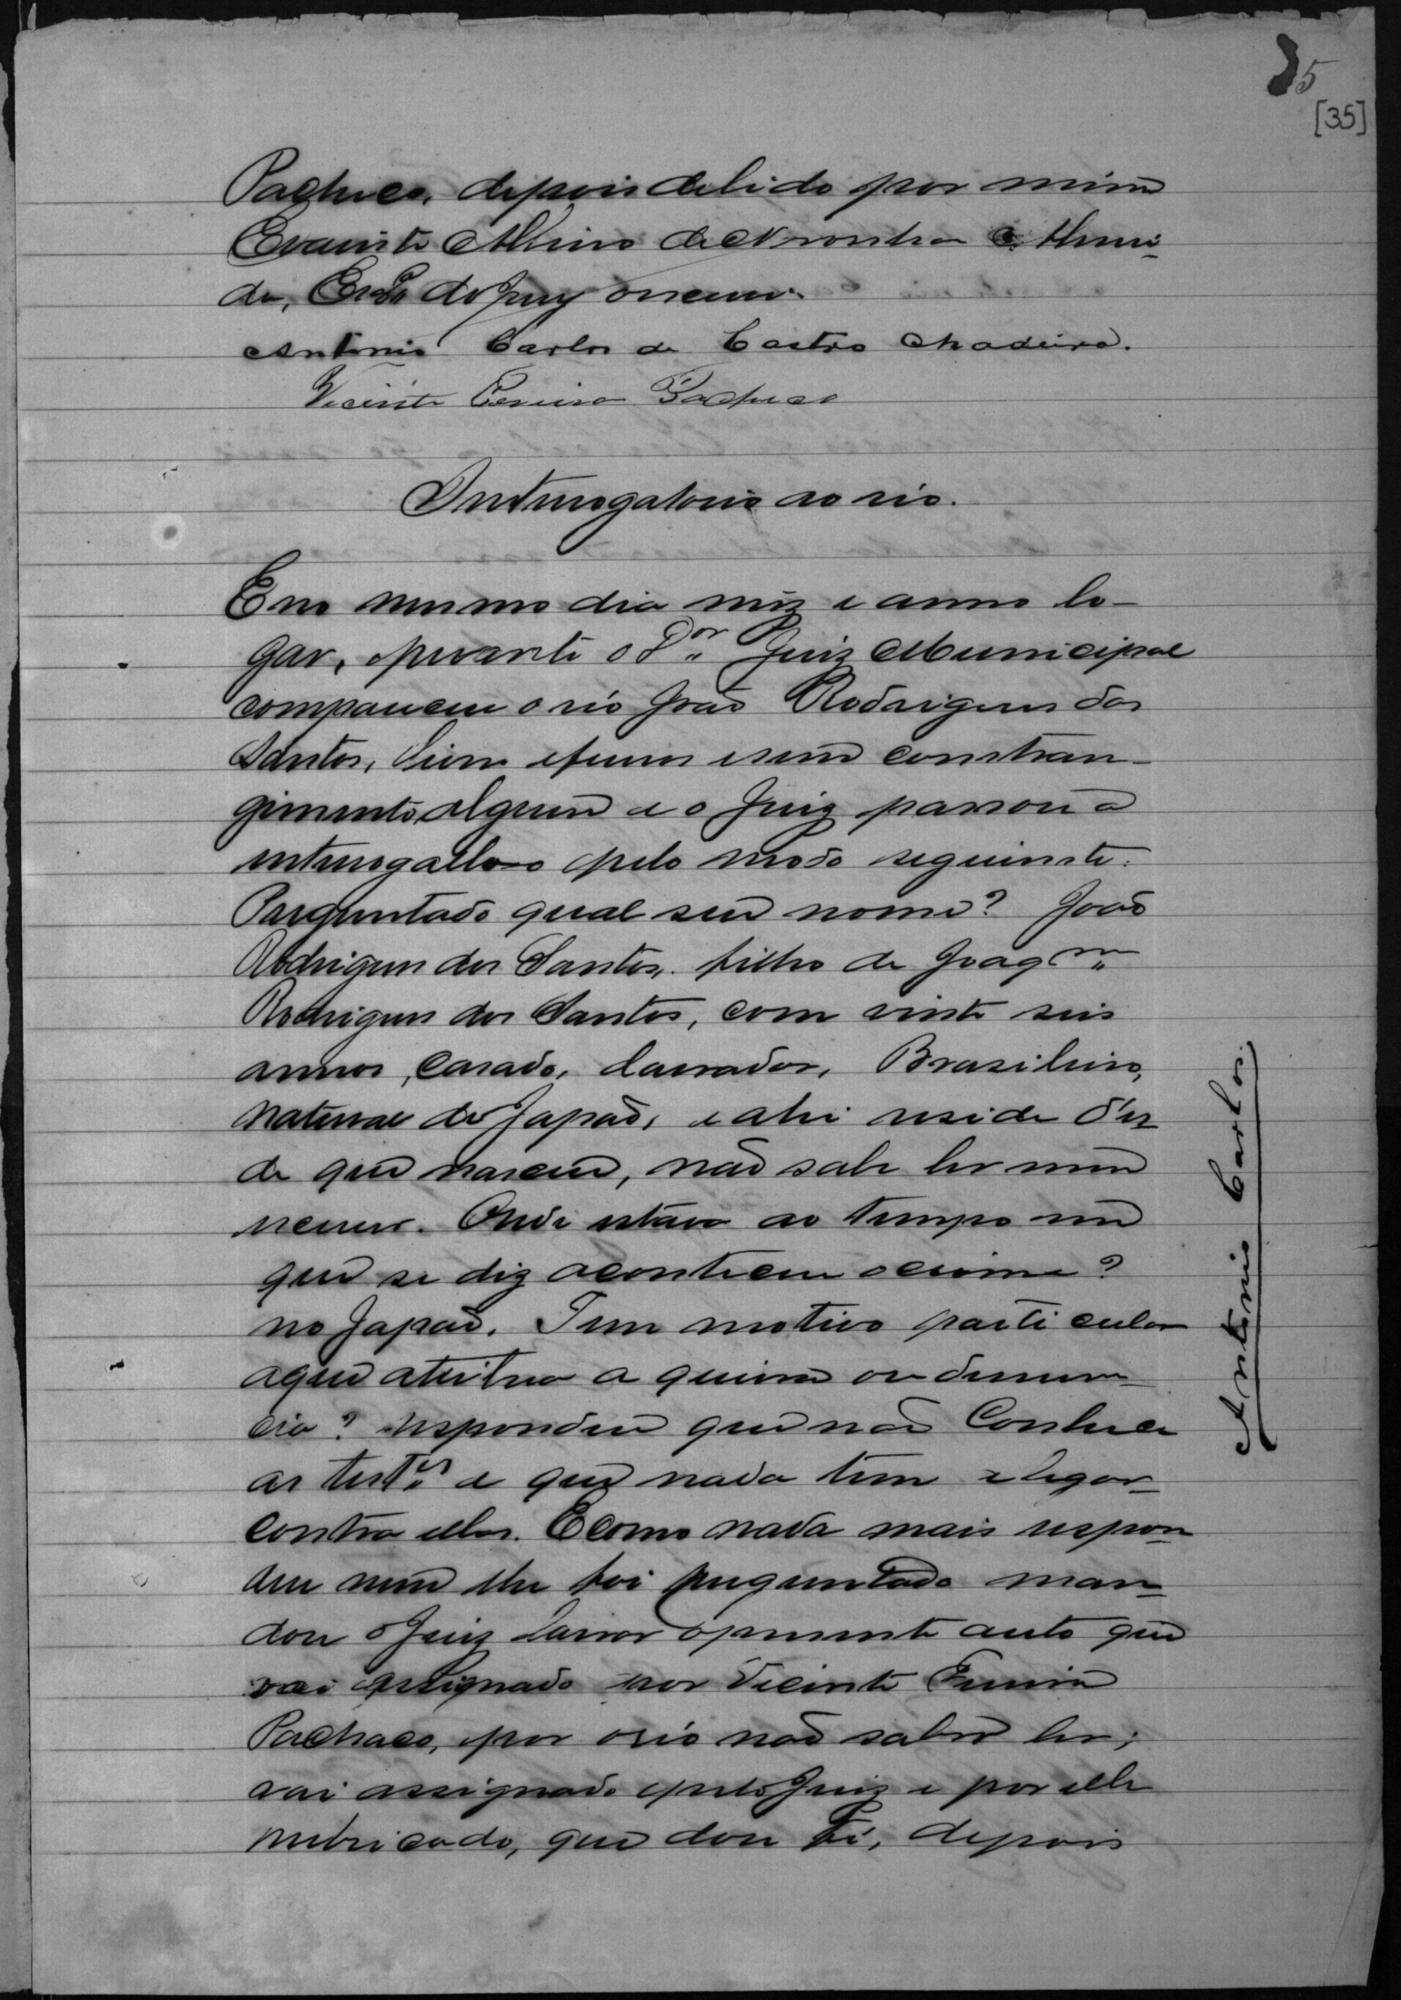 35
[35]
Pacheco, depois de lido por mim
Evaristo Albino de Noronha e Almei-
da, Escr.º do Jury o escrevi.
Antonio Carlos de Castro Madeira.
Vicente Ferreira Pacheco
Interrogatorio ao réo.
E no mesmo dia mez e anno lo-
gar, e perante o D.or Juiz Municipal
compareceu o réo João Rodrigues dos
Santos, livre e ferros e sem constran-
gimento algum e o Juiz passou a
interrogallo pelo modo seguinte:
Perguntado qual seu nome? João
Rodrigues dos Santos, filho de Joaq.m
Rodrigues dos Santos, com vinte seis
annos, casado, lavrador, Brasileiro,
natural do Japão, e ahi reside d'es
de que nasceu, não sabe ler nem
escrever. Onde estava ao tempo em
que se diz aconteceu o crime?
no Japão. Tem motivo particular
a que atribua a queixa ou denun-
cia? respondeu que não Conhece
as test.as e que nada tem alegar
contra ellas. E como nada mais respon
deu nem lhe foi preguntado man-
dou o Juiz lavrar o presente auto que
vai assignado por Vicente Ferreira
Pacheco, por o réo não saber ler;
vai assignado pelo Juiz e por elle
rubricado, que dou fé, depois
Antonio Carlos